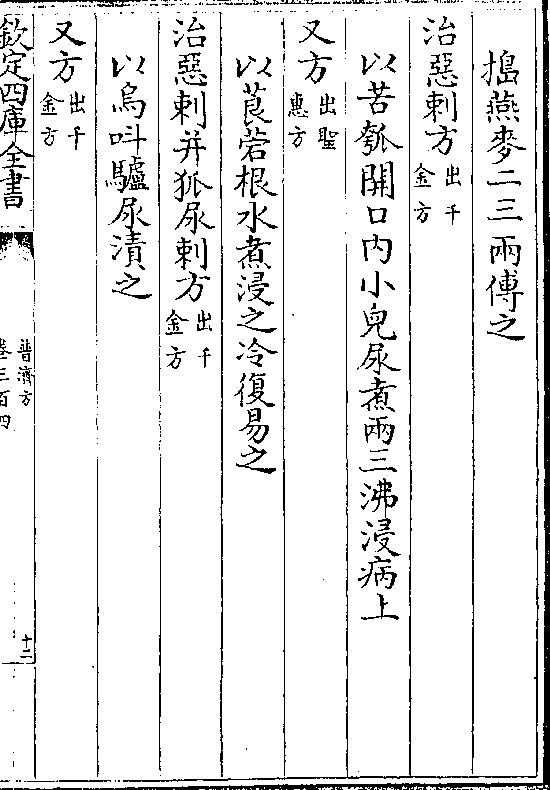 搗燕麥二三兩傅之
治惡刺方出千金方
以苦瓠開口內小兒尿煮兩三沸浸病上
又方出聖惠方
以莨菪根水煮浸之冷復易之
治惡刺并狐尿刺方出千金方
以烏呌驢尿漬之
又方出千金方
欽定四庫全書
普濟方
卷三百四
十二